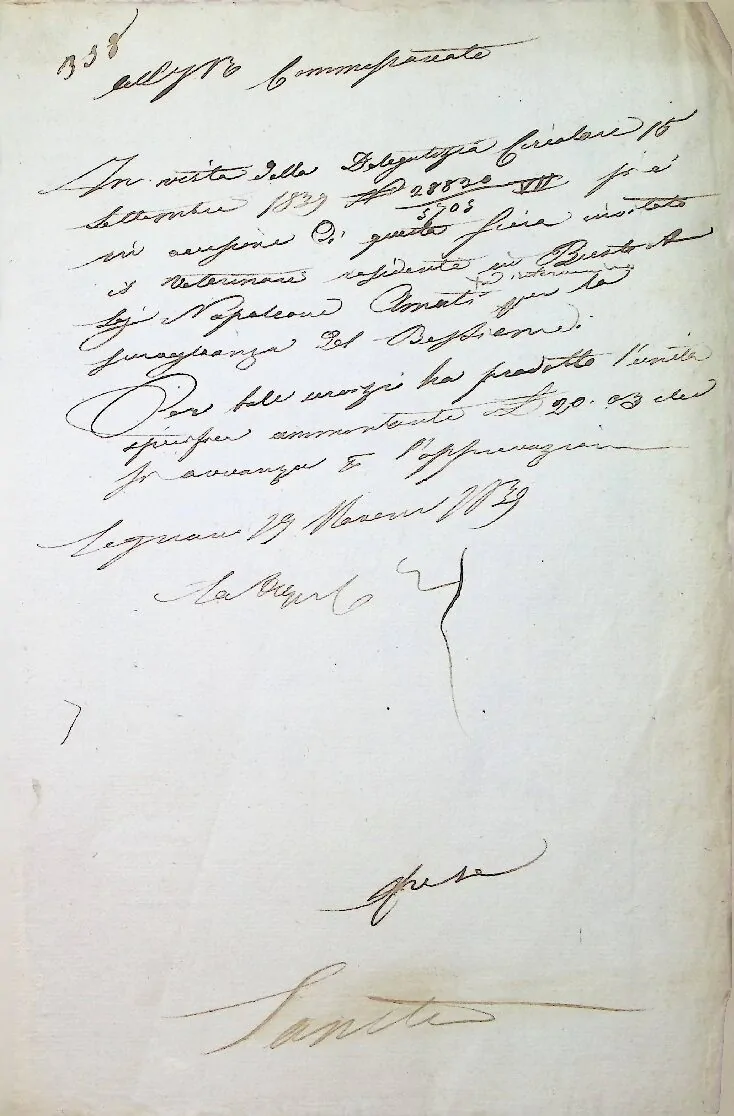 338
All' I. R. Commissariato
In vista della Delegatizia Circolare 16
Settembre 1839 N. 28820/5705 VII si è
in occasione di questa fiera invitato
il Veterinario residente in Busto A.
Sig. Napoleone Amati per la
sorveglianza del Bestiame.
Per tale ha prodotto l'unita
ammontante a L 20.03 che
si avanza l'approvazione
Legnano 29 Novem 1839
La Dep.
Spese
Sanità